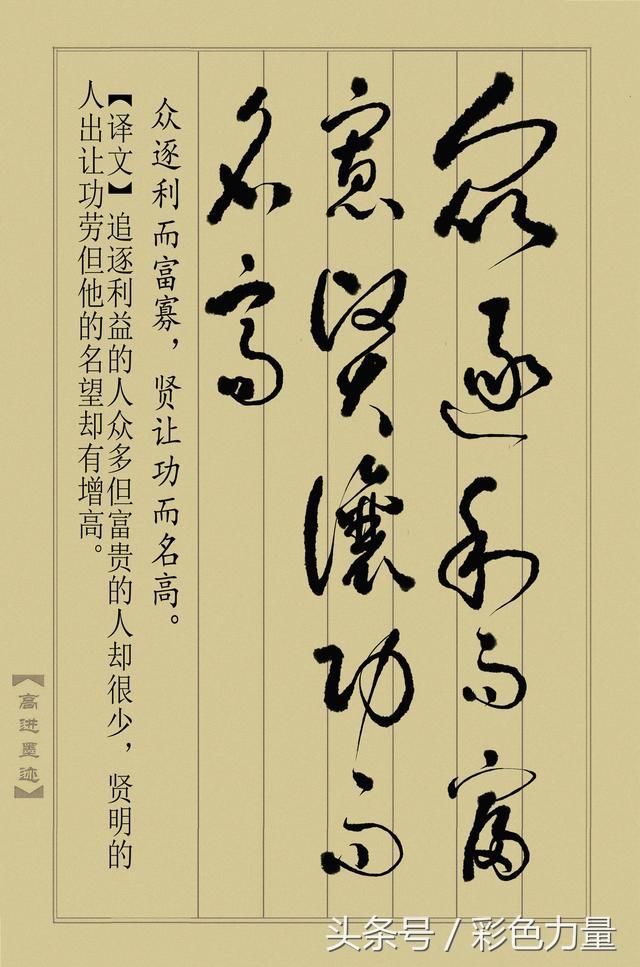 众逐利而富
寡贤让功而
名高
众逐利而富寡，贤让功而名高。
【译文】追逐利益的人众多但富贵的人却很少，贤明的
人出让功劳但他的名望却有增高。
【高进墨迹】
头条号 / 彩色力量